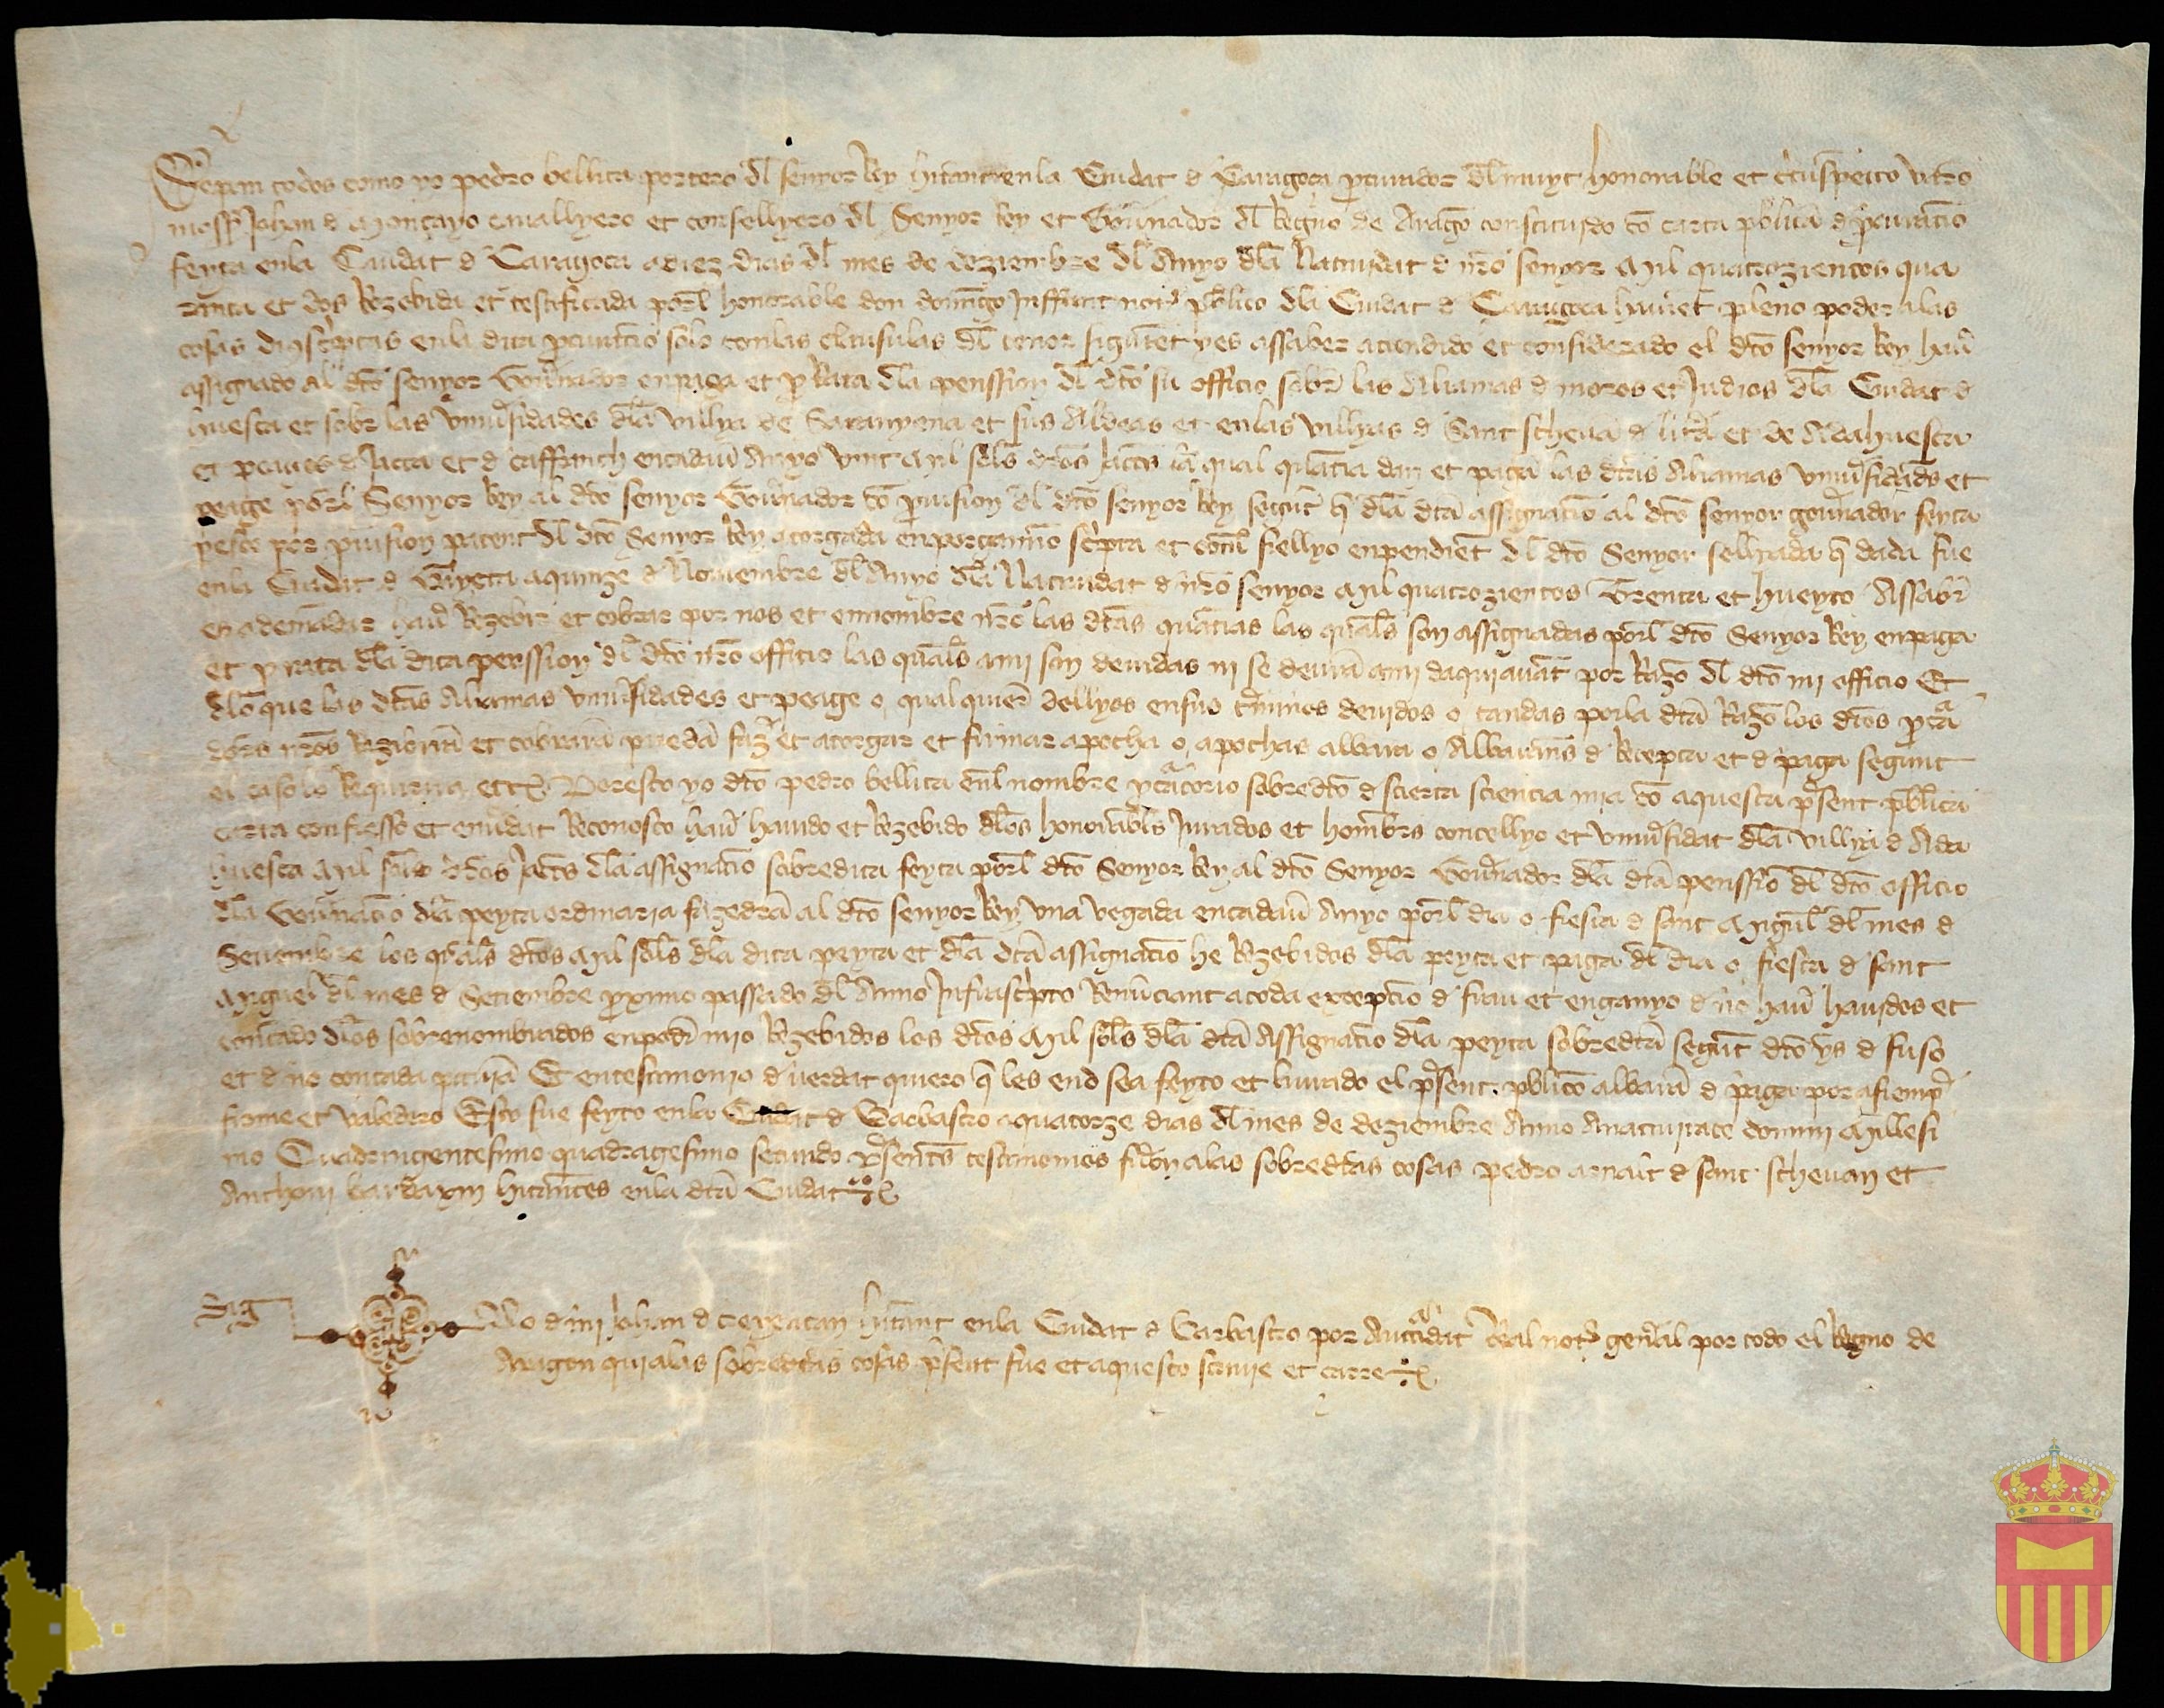 Sepan todos como yo pedro bellita portero dl senyor Rey hitant en la Ciudat d Caragoça pcurador dl muyt honorable et circunspecto varo
mossē Johan d Monçayo cavallyero et consellyero dl Senyor Rey et Gouernador dl Regno de Arago constituydo co carta publica d pcuracio
feyta en la Ciudat d Caragoça a diez dias dl mes de deziembre dl Anyo dla Natiuidat d nro senyor Mil quatrozientos qua
ranta et dos Rezebida et testificada porl honorable don domingo Inffant not publico dla Ciudat d Caragoça hauiet pleno poder a las
cosas diuscriptas en la dita pcuracio solo con las clausulas dl tenor siguient yes assaber atendido et considerado el dto senyor Rey hau
assignado al dto senyor Gouernador en paga et p Rata dla penssion dl dto su officio sobre las Aliamas d moros et Judios dla Ciudat d
huesca et sobr las vniuersidades dla villya de Saranyena et sus Aldeas et en las villyas d Sant stheuā d litra et de Adahuesca
et peages d Jacca et d Caffranch en cadau Anyo vint Mil sols dros Jaccs la qual quātia dan et pagā las dtas Aliamas vniuersidads et
peage porl Senyor Rey al dto senyor Gouernador co prouision dl dto senyor Rey segūt q dla dtā assignacio al dto senyor gouernador feyta
por prouision patent dl dto Senyor Rey atorgada en pergamino scripta et con siellyo en pendient dl dto Senyor sellyada q dada fue
en la Ciudat d Gayeta a quinze d Nouiembre dl Anyo dla Natiuidat d nro senyor Mil quatrozientos Trenta et hueyto Assabr
es demādar hau Rezebir et cobrar por nos et en nombre nro las dtas quātias las quals son assignadas porl dto Senyor Rey en paga
et p rata dla dita penssion dl dto nro officio las quals a mi son deuidas ni se deurā a mi daqui auāt por Razō dl dto mi officio Et
dlo que las dtas Aliamas vniuersidades et peage o qual quiere dellyos en sus terminos deuidos o tandas por la dtā Razō los dtos pcura
dors nros Reziberā et cobrarā puedā fazer et atorgar et firmar apocha o apochas albara o Albarans d Recepta et d paga segunt
el caso lo Requerira etc. Por esto yo dto pedro bellita enl nombre pcuratorio sobredto d scierta sciencia mia co aquesta present publica
carta confiesso et en verdat Reconosco hau hauido et Rezebido dlos honorabls Jurados et hombrs concellyo et vniuersidat dla villya d Ada
huesca Mil sols dros Jaccs dla assignacio sobredita feyta porl dto Senyor Rey al dto Senyor Gouernador dla dtā penssio dl dto officio
dla Gouernacio dla peyta ordinaria fazedera al dto senyor Rey vna vegada en cadau Anyo porl dia o fiesta d sant Miguel dl mes d
Setiembre los quals dtos Mil sols dla dita peyta et dla dtā assignacio he Rezebidos dla peyta et paga dl dia o fiesta d sant
Miguel dl mes d Setiembre proximo passado dl Anno Infrascripto Renunciant a toda excepcio d frau et enganyo d no hau hauidos et
contado dlos sobrenombrados en poder mio Rezebidos los dtos Mil sols dla dtā Assignacio dla peyta sobredtā segūt dto ys d suso
et d no contada pecunia Et en testimonio d verdat quiero q les end sea feyto et liurado el present publico albara d paga por a siempre
firme et valedero Esto fue feyto en la Ciudat d Barbastro a quatorze dias dl mes de deziembre Anno A natiuitate domini Millesi
mo Quadringentesimo quadragesimo secundo presents testimonios fuero a las sobredtas cosas pedro arnaut d sant stheuan et
Anthoni bardaxin hitantes en la dtā Ciudat
Sig no d mi Johan d hitant en la Ciudat d Barbastro por Auctoridat Real not general por todo el Regno de
Aragon qui a las sobredtas cosas present fue et aquesto scriuie et carre